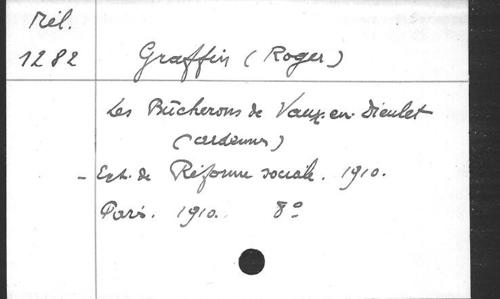 Mél.
1282
Graffin (Roger)
Les Bûcherons de Vaux-en-Dieulet
(Ardennes)
- Ext. de Réforme sociale. 1910.
Paris. 1910. 8°